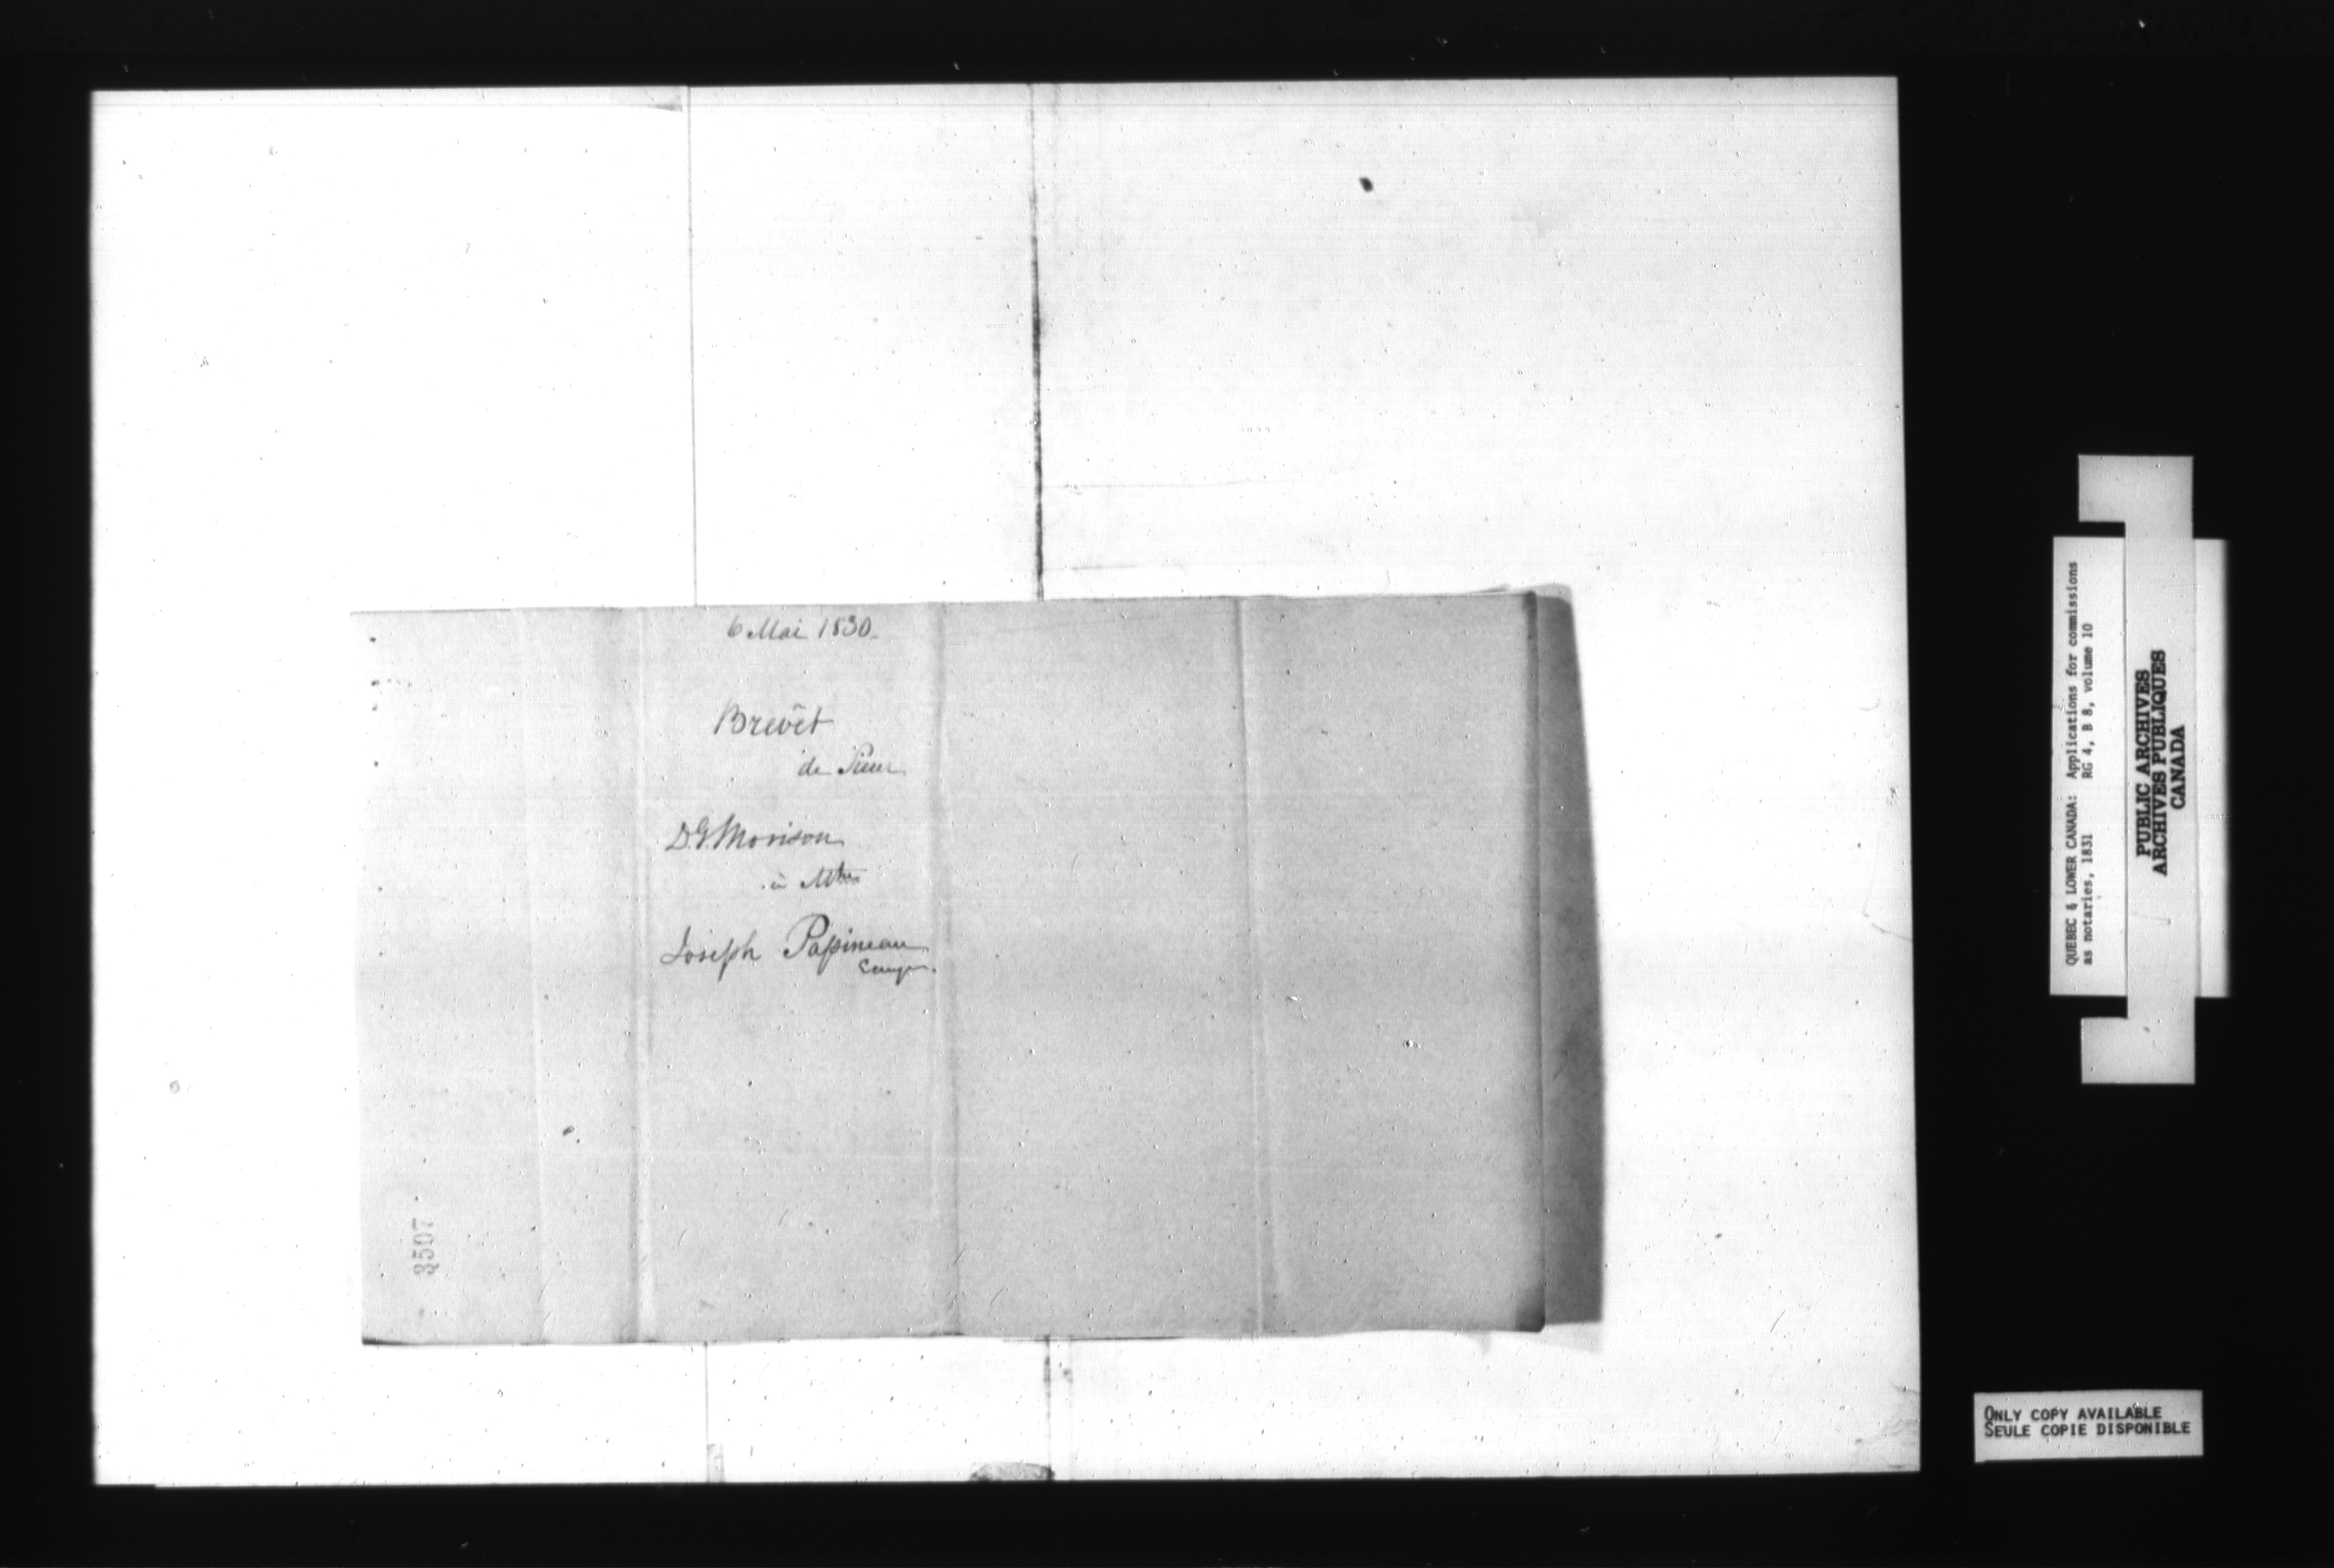 6 Mai 1830.
Brevêt
de Sieur
D.G. Morison
à Mtre
Joseph Papineau
8507
QUEBEC & LOWER CANADA: Applications for commissions
as notaries, 1831 RG 4, B 8, volume 10
PUBLIC ARCHIVES
ARCHIVES PUBLIQUES
CANADA
ONLY COPY AVAILABLE
SEULE COPIE DISPONIBLE